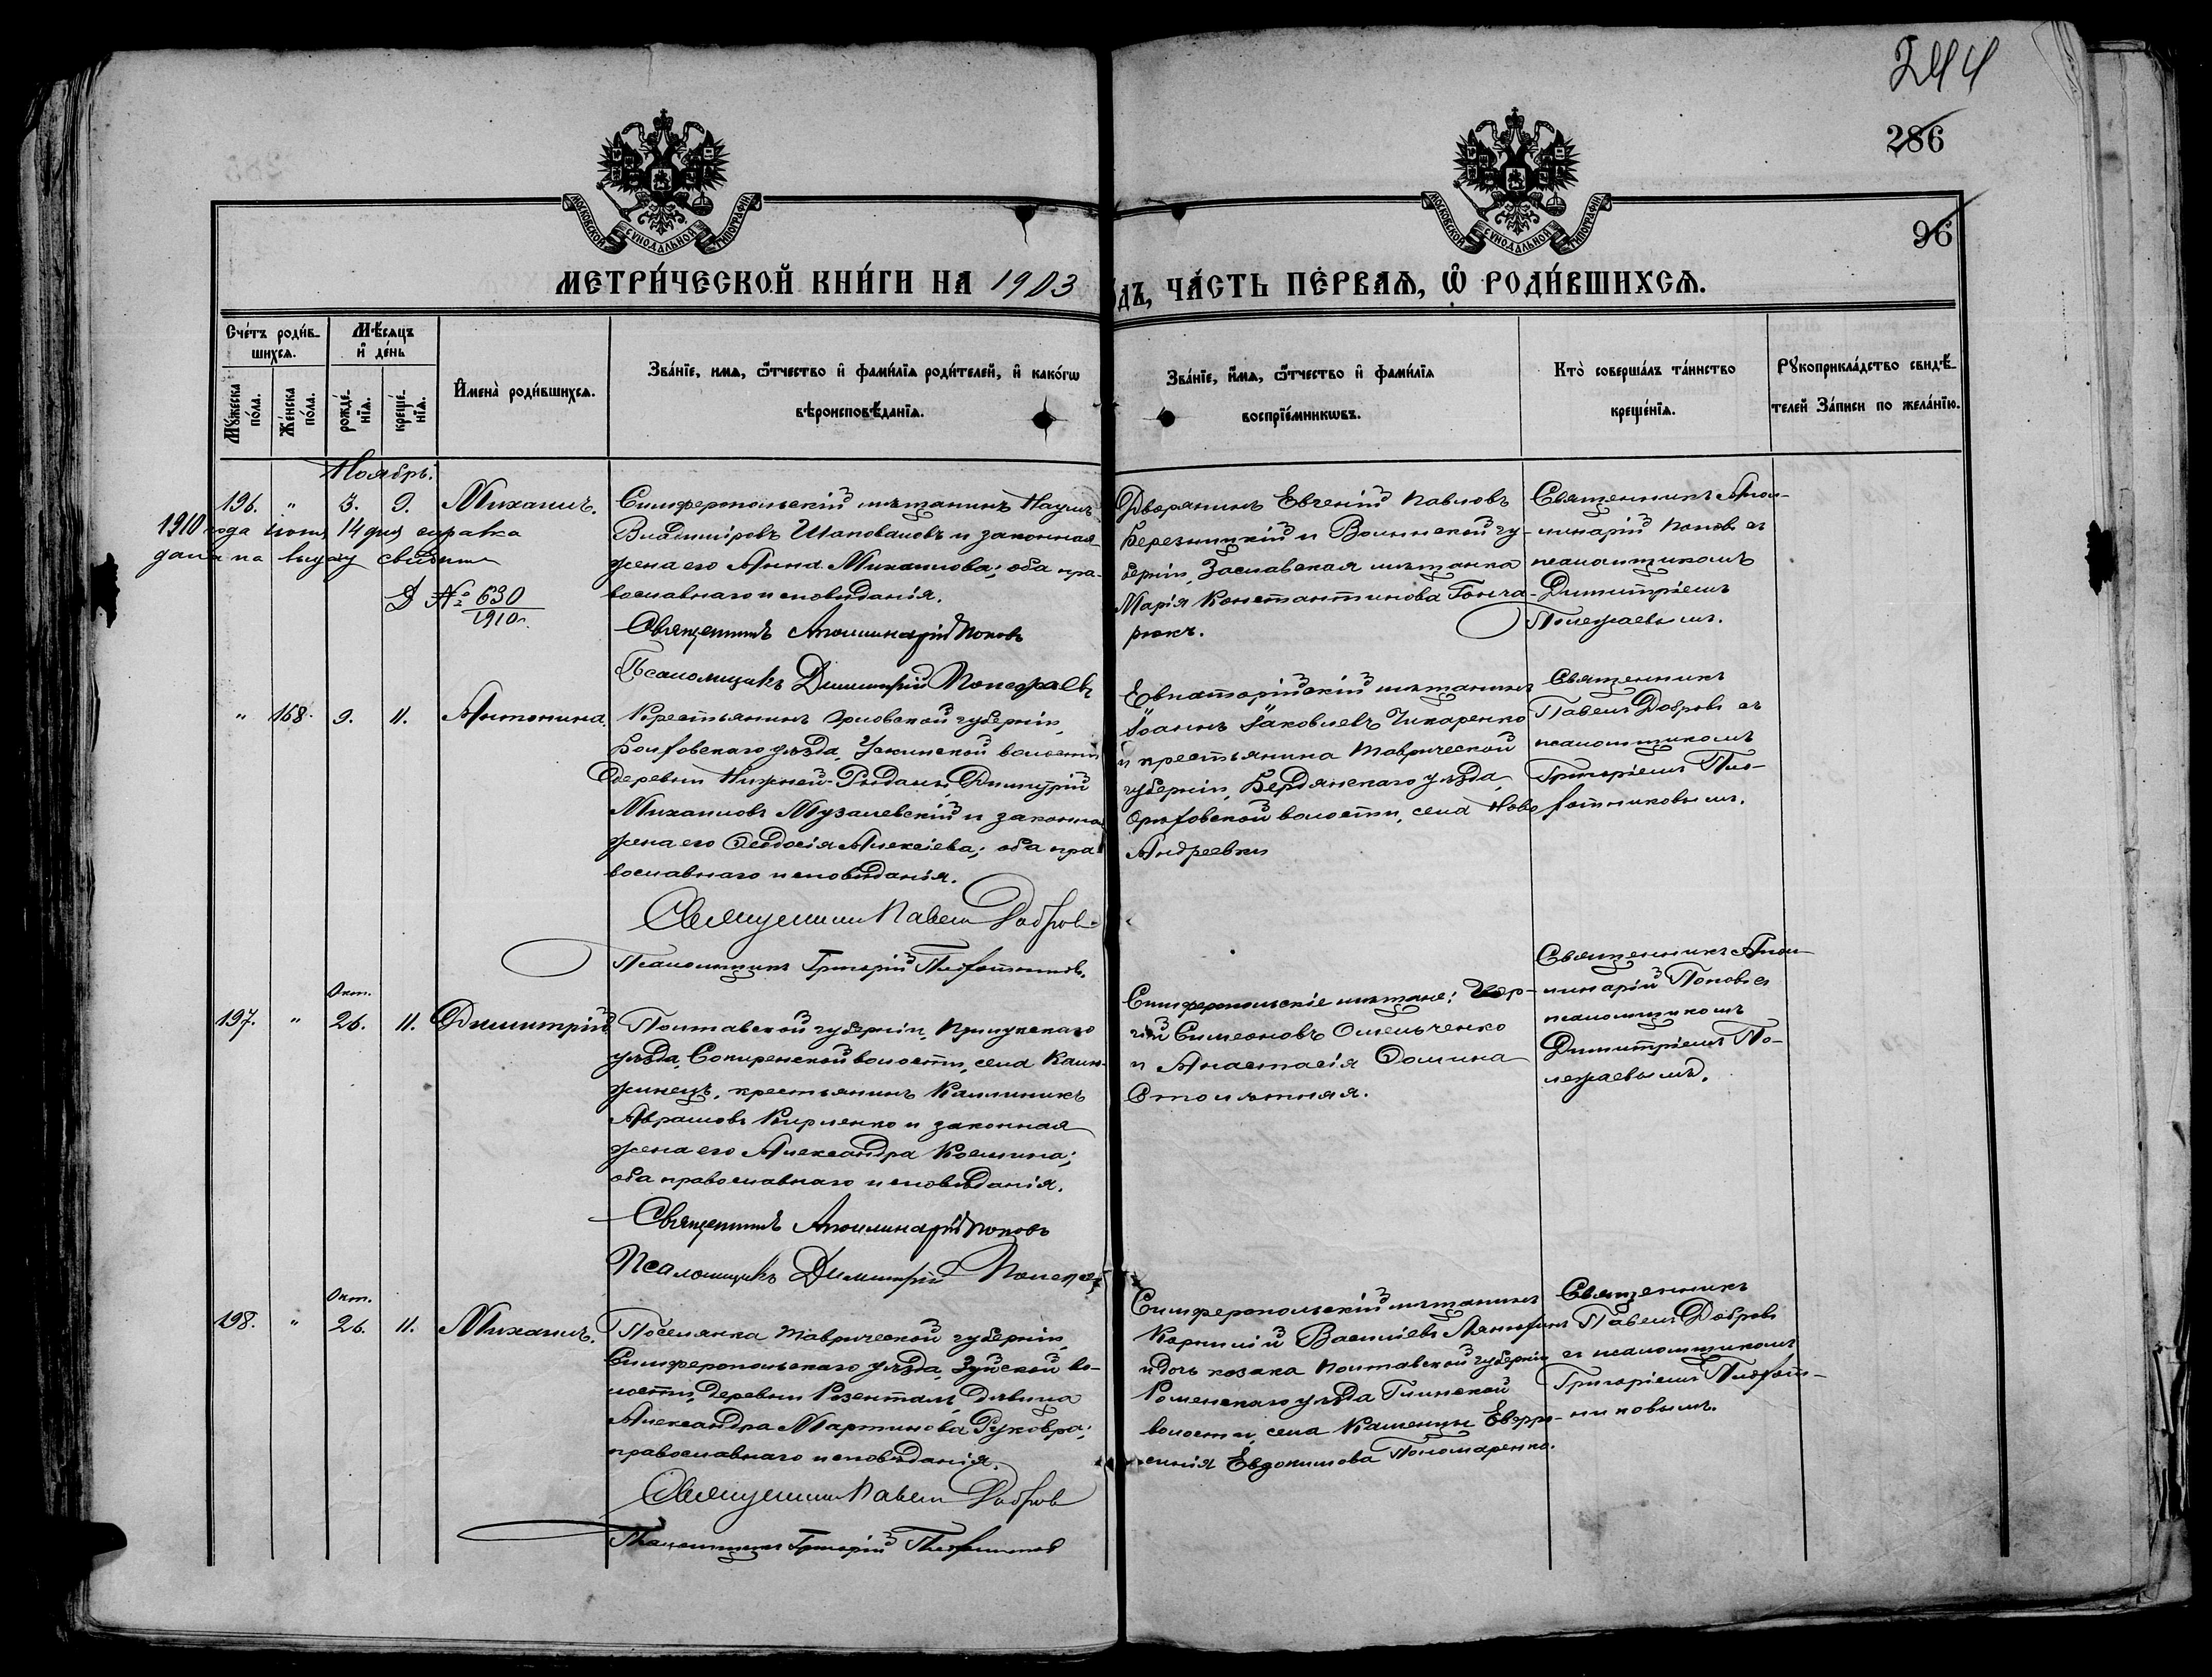 244
286
96
МОСКОВСКОЙ СѴНОДАЛЬНОЙ ТИПОГРАФІИ
МОСКОВСКОЙ СѴНОДАЛЬНОЙ ТИПОГРАФІИ
МЕТРИ́ЧЕСКОЙ КНИ́ГИ НА 1903
ДЪ, ЧА́СТЬ ПЕ́РВАѦ, Ѡ РОДИ́ВШИХСѦ.
Сче́тъ роди́в-
шихсѧ.
Мꙋ́жеска
по́ла.
Же́нска
по́ла.
Мѣ́сѧцъ
и҆ де́нь
рожде́-
нїѧ.
креще́-
нїѧ.
И҆мена̀ роди́вшихсѧ.
Зва́нїе, имѧ, ѻ҆́тчество и҆ фами́лїѧ роди́телей, и҆ како́гѡ
вѣроисповѣ́данїѧ.
Зва́нїе, и҆́мѧ, ѻ҆́тчество и҆ фами́лїѧ
воспрїе́мникѡвъ.
Кто̀ соверша́лъ та́инство
креще́нїѧ.
Рꙋкоприкла́дство свидѣ́-
телей За́писи по жела́нїю.
Ноябрь.
196. " 3. 9. Михаилъ.
Симферопольскій мѣщанинъ Наумъ
Владиміровъ Шаповаловъ и законная
жена его Анна Михаилова; оба пра-
вославнаго исповѣданія.
Священникъ Аполлинарій Поповъ
Псаломщикъ Димитрій Полежаевъ
1910 года іюня 14 дня справка
дана на выдачу свидѣт
№ 630
1910 г.
Дворянинъ Евгеній Павловъ
Березницкій и Волынской гу-
берніи, Заславская мѣщанка
Марія Константинова Гонча-
рюкъ.
Священникъ Апол-
линарій Поповъ съ
псаломщикомъ
Димитріемъ
Полежаевымъ.
" 168. 9. 11. Антонина.
Крестьянинъ Орловской губерніи,
Болховскаго уѣзда, волости
деревни Нижней Димитрій
Михаиловъ Музалевскій и законная
жена его Ѳеодосія Алексіева; оба пра
вославнаго исповѣданія.
Священникъ Павелъ Добровъ
Псаломщикъ Григорій Плохотниковъ.
Евпаторійскій мѣщанинъ
Іоаннъ Іаковлевъ Чикаренко
и крестьянина Таврической
губерніи, Бердянскаго уѣзда,
Орѣховской волости, села Ново
Андреевки
Священникъ
Павелъ Добровъ съ
псаломщикомъ
Григоріемъ Пло-
хотниковымъ.
Окт.
197. " 26. 11. Димитрій.
Полтавской губерніи, Прилукскаго
уѣзда, Сокиренской волости, села Калю-
жинецъ, крестьянинъ Каллиникъ
Аврамовъ Кириленко и законная
жена его Александра Козмина;
оба православнаго исповѣданія.
Священникъ Аполлинарій Поповъ
Псаломщикъ Димитрій
Симферопольскіе мѣщане: Геор-
гій Симеоновъ Омельченко
и Анастасія Ѳомина
Столѣтняя.
Священникъ Апол-
линарій Поповъ съ
псаломщикомъ
Димитріемъ По-
лежаевымъ.
Окт.
198. " 26. 11. Михаилъ.
Поселянка Таврической губерніи,
Симферопольскаго уѣзда, Зуйской во-
лости, деревни Розенталь, дѣвица
Александра Мартинова
православнаго исповѣданія.
Священникъ Павелъ Добровъ
Псаломщикъ Григорій Плохотниковъ
Симферопольскій мѣщанинъ
Корнилій Василіевъ
и дочь козака Полтавской губерніи
Роменскаго уѣзда Глинской
волости, села Каменцы Евфро-
синія Евдокимова Пономаренко.
Священникъ
Павелъ Добровъ
съ псаломщикомъ
Григоріемъ Плохот-
никовымъ.